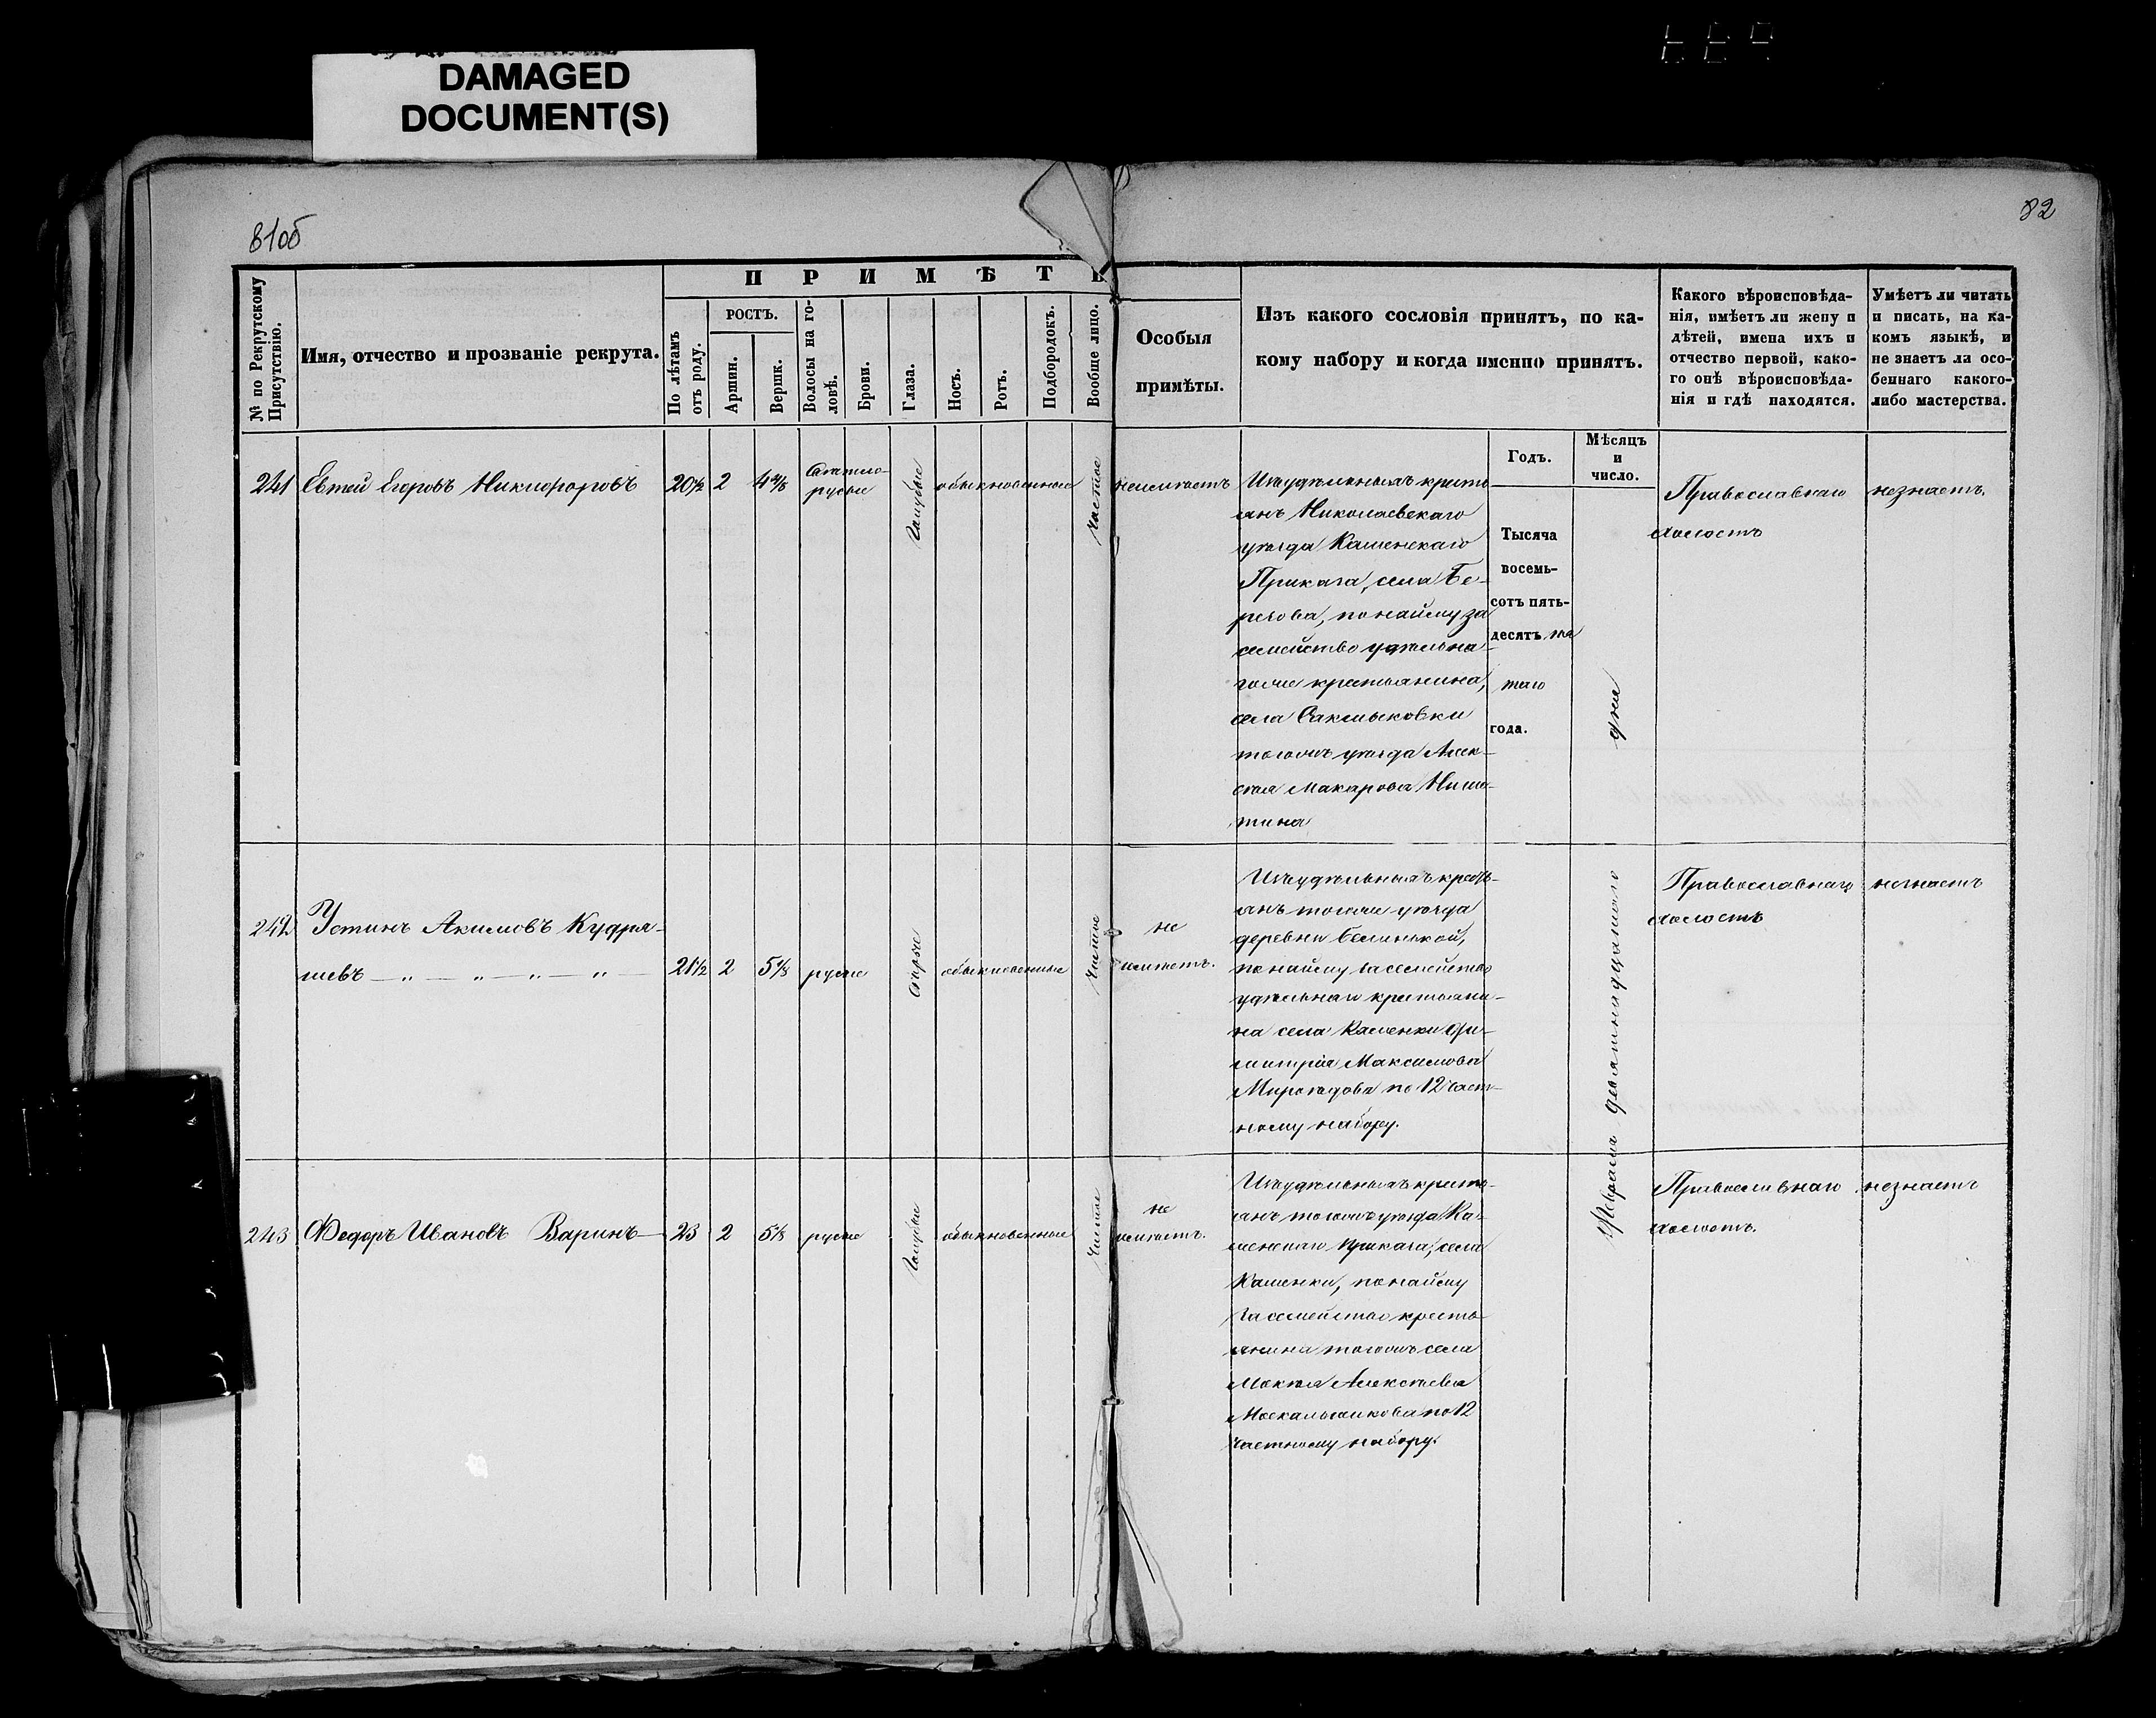 DAMAGED
DOCUMENT(S)
81об
82
П Р И М Ѣ Т Ы
№ по Рекрутскому Присутствію.
Имя, отчество и прозваніе рекрута.
По лѣтамъ отъ роду.
РОСТЪ.
Аршин.
Вершк.
Волосы на головѣ.
Брови.
Глаза.
Носъ.
Ротъ.
Подбородокъ.
Вообще лицо.
Особыя
примѣты.
Изъ какого сословія принятъ, по ка-
кому набору и когда именно принятъ.
Какого вѣроисповѣда-
нія, имѣетъ ли жену и
дѣтей, имена ихъ и
отчество первой, како-
го онѣ вѣроисповѣда-
нія и гдѣ находятся.
Умѣетъ ли читать
и писать, на ка-
комъ языкѣ, и
не знаетъ ли осо-
беннаго какого-
либо мастерства.
Годъ.
Мѣсяцъ
и
число.
Тысяча
восемь-
сотъ пять-
десятъ пя
таго
года.
Февраля девятнадцатого дня
241 Евтей Егоровъ Никифоровъ 20½ 2 4 4/8
Светло-
русые
голубые
обыкновенные
чистое
неимеетъ
Изъ удѣльныхъ кресть
янъ Николаевскаго
уѣзда Каменскаго
Приказа, села Бе-
резова, по найму за
семейство удѣльна-
гоже крестьянина,
села Сакмыковки
тогожъ уѣзда Алек-
сѣя Макарова Ники-
тина
Православнаго
холостъ
незнаетъ.
242 Устинъ Акимовъ Кудря-
шевъ — „ — „ — „ — „ — 21½ 2 5⅛ русые
серые
обыкновенные
чистое
не
имеетъ.
Изъ удѣльныхъ кресть-
янъ тогоже уѣзда
деревни Селинькой,
по найму за семейство
удѣльнаго крестьяни-
на села Каменки Ди-
митрія Максимова
Мироѣдова по 12 част-
ному набору.
Православнаго
холостъ
незнаетъ
243 Федоръ Ивановъ Варинъ — 23 2 5⅛ русые
голубые
обыкновенные
чистое
не
имеетъ.
Изъ удѣльныхъ кресть-
янъ тогожъ уѣзда Ка-
менскаго Приказа, села
Каменки, по найму
за семейство кресть-
янина тогожъ села
Мокѣя Алексѣева
Москальникова по 12
частному набору.
Православнаго
холостъ.
незнаетъ